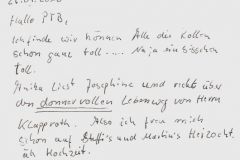 Hallo PTB,
Ich finde wir können Alle die Rollen
schon ganz toll.... Naja ein bisschen
toll.
Anika Liest Josephine und nicht über
den donnervollen Lebensweg von Herrn
Klapproth. Also ich freu mich
schon auf Steffi's und Martins Heizocht.
äh Hochzeit.